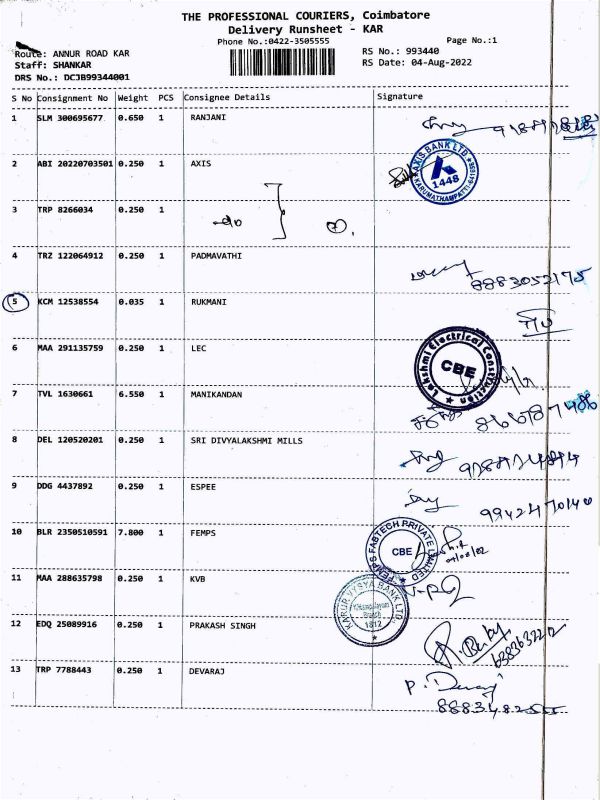 THE PROFESSIONAL COURIERS, Coimbatore
Delivery Runsheet - KAR
Phone No.:0422-3505555
Page No.:1
Route: ANNUR ROAD KAR
RS No.: 993440
Staff: SHANKAR
RS Date: 04-Aug-2022
DRS No.: DCJB99344001
S No Consignment No Weight PCS Consignee Details Signature
1 SLM 300695677 0.650 1 RANJANI
2 ABI 20220703501 0.250 1 AXIS
AXIS BANK LTD
1448
3 TRP 8266034 0.250 1
4 TRZ 122064912 0.250 1 PADMAVATHI
8883052175
5 KCM 12538554 0.035 1 RUKMANI
6 MAA 291135759 0.250 1 LEC
Lakshmi Electrical Construction
CBE
7 TVL 1630661 6.550 1 MANIKANDAN
8 DEL 120520201 0.250 1 SRI DIVYALAKSHMI MILLS
9 DDG 4437892 0.250 1 ESPEE
9942470140
10 BLR 2350510591 7.800 1 FEMPS
FEMPS FABTECH PRIVATE LIMITED
CBE
11 MAA 288635798 0.250 1 KVB
KARUR VYSYA BANK LTD.
Branch
1812
12 EDQ 25089916 0.250 1 PRAKASH SINGH
13 TRP 7788443 0.250 1 DEVARAJ
P. Devaraj